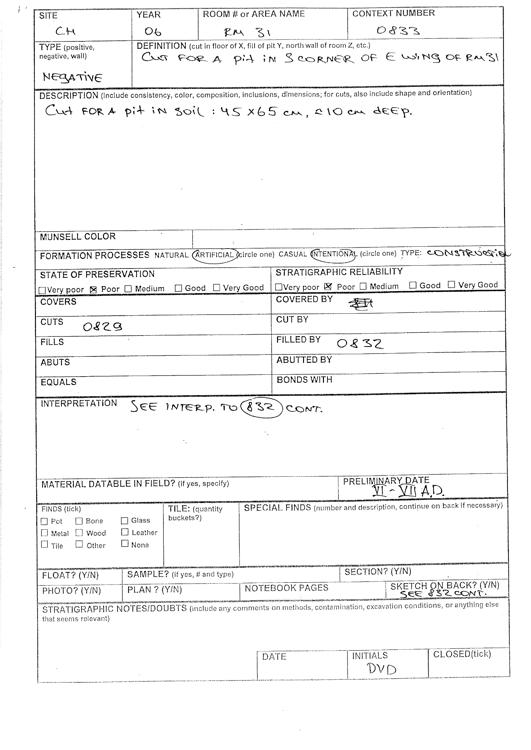 SITE YEAR ROOM # or AREA NAME CONTEXT NUMBER
CH 06 RM 31 0833
TYPE (positive, negative, wall) DEFINITION (cut in floor of X, fill of pit Y, north wall of room Z, etc.)
NEGATIVE CUT FOR A pit IN S CORNER OF E WING OF RM31
DESCRIPTION (Include consistency, color, composition, inclusions, dimensions; for cuts, also include shape and orientation)
CUT FOR A pit IN SOIL : 45 X 65 cm, 10 cm dEEP.
MUNSELL COLOR
FORMATION PROCESSES NATURAL ARTIFICIAL (circle one) CASUAL INTENTIONAL (circle one) TYPE: CONSTRUCTION
STATE OF PRESERVATION STRATIGRAPHIC RELIABILITY
☐ Very poor ☒ Poor ☐ Medium ☐ Good ☐ Very Good ☐ Very poor ☒ Poor ☐ Medium ☐ Good ☐ Very Good
COVERS COVERED BY
CUTS 0829 CUT BY
FILLS FILLED BY 0832
ABUTS ABUTTED BY
EQUALS BONDS WITH
INTERPRETATION SEE INTERP. TO 832 CONT.
MATERIAL DATABLE IN FIELD? (if yes, specify) PRELIMINARY DATE
VI - VII A.D.
FINDS (tick) TILE: (quantity buckets?) SPECIAL FINDS (number and description, continue on back if necessary)
☐ Pot ☐ Bone ☐ Glass
☐ Metal ☐ Wood ☐ Leather
☐ Tile ☐ Other ☐ None
FLOAT? (Y/N) SAMPLE? (if yes, # and type) SECTION? (Y/N)
PHOTO? (Y/N) PLAN ? (Y/N) NOTEBOOK PAGES SKETCH ON BACK? (Y/N)
SEE 832 CONT.
STRATIGRAPHIC NOTES/DOUBTS (include any comments on methods, contamination, excavation conditions, or anything else
that seems relevant)
DATE INITIALS CLOSED(tick)
DVD